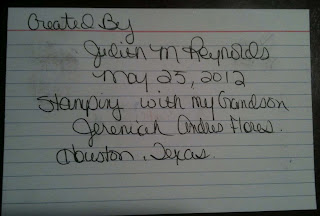 Created By
Judith M Reynolds
May 25, 2012
Stamping with my Grandson
Jeremiah Andres Flores.
Houston, Texas